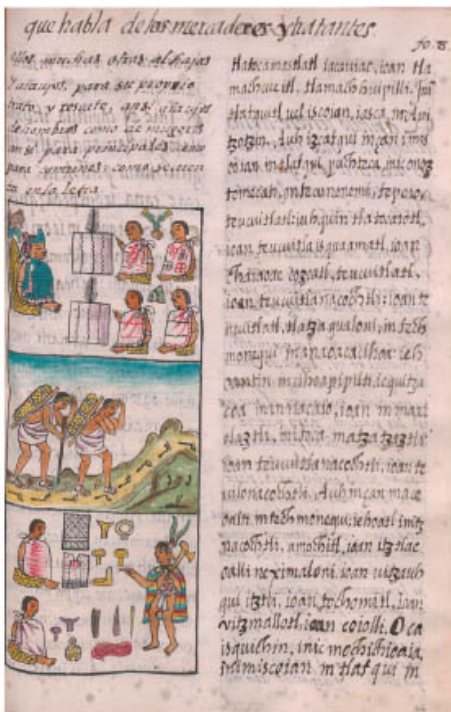 que habla de los mercaderes y tratantes.
fo. 8.
ellos, muchas otras alhajas
y atavjos, para su proprio
trato, y rescate, ansi atavjos
de hombres como de mugeres
ansi para principales como
para comunes: como se cuen
ta en la letra.
tlatocamaxtlatl iacaviac, ioan tla
machcueitl, tlamachvipilli. Jn
tlatquitl vel iscoian, iasca, m Avi
tzotzin. Auh izcatqui in çan inis
coian in tlatqui puchteca, inic onoz
tomecati, in tecunenenj, te
teucuitlatl: iuhquin tlatocaiotl,
ioan teucuitla isquaamatl, ioan
chaiaoac cozcatl, teucuitlatl,
ioan teucuitlanacochtli: ioan te
cuitlatl, tlatzaqualoni, in tech
monequi in anaoaca cihoa ieh
oantin in cihoapipilti, ic quitza
coa in innacaio, ioan in maxi
tlaztli, mitoa matzatzaztli
ioan teucuitlanacochtli, ioan te
vilonacochtli. Auh in çan mace
oalti in tech monequi: iehoatl in itz
nacochtli, amochitl, ioan itztlae
oalli neximaloni, ioan vitzauh
qui itztli, ioan tochomitl, ioan
vitzmallotl, ioan coiolli. O ca
isquichin, inic mochichioaia
inimiscoian in tlatqui in